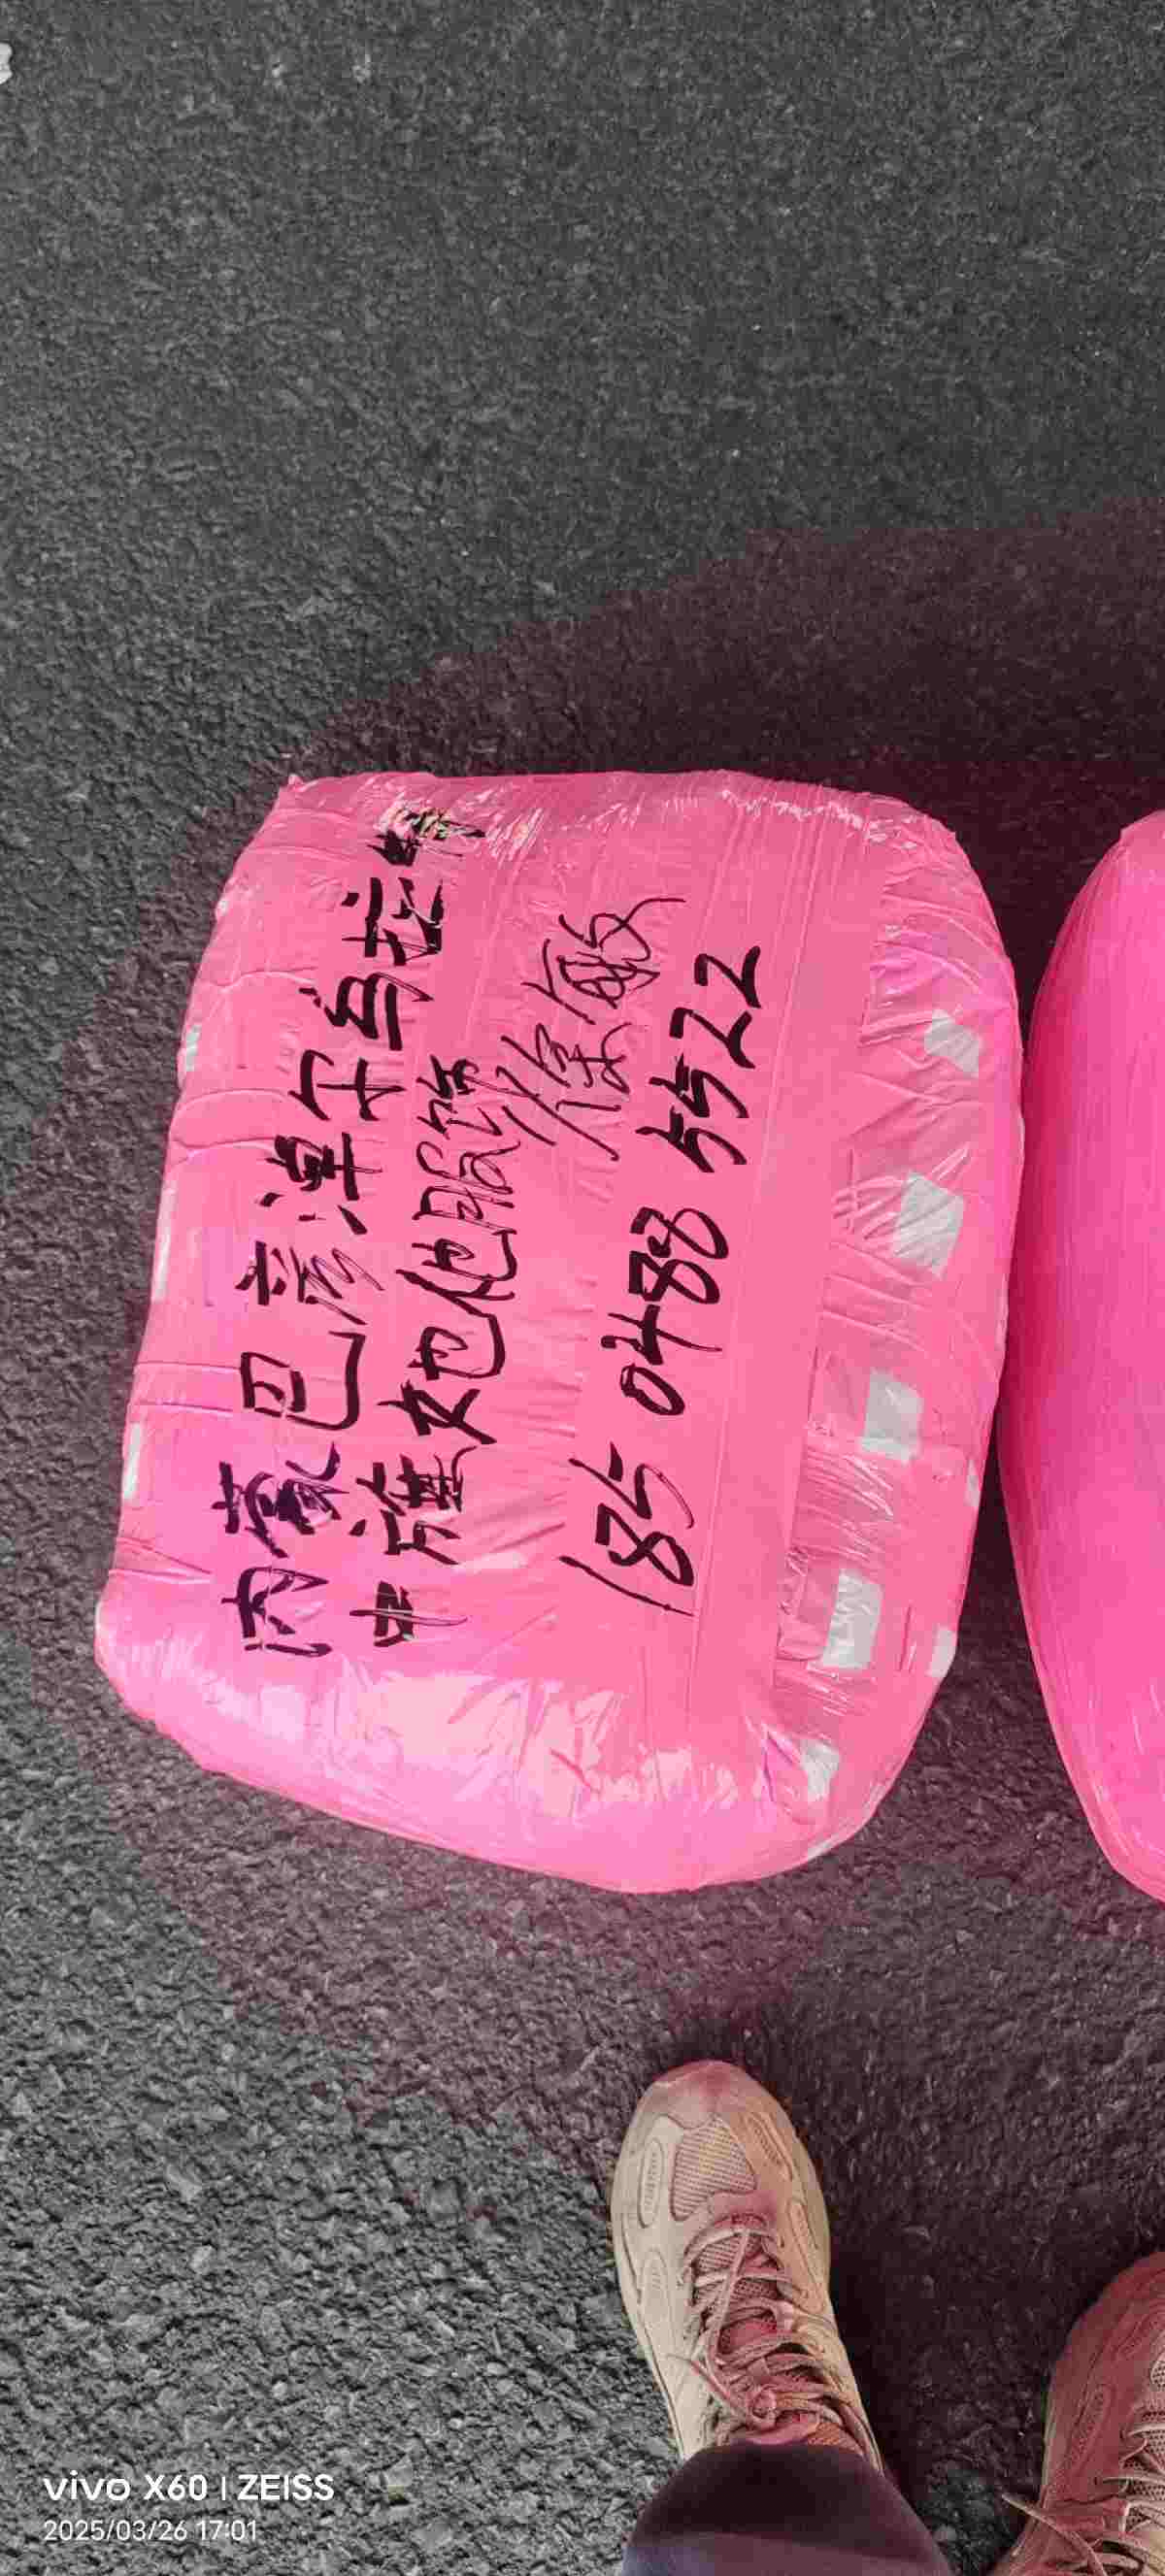 内蒙巴彦淖尔乌拉特
中旗她他服饰
徐敏
185 0488 5522
vivo X60 | ZEISS
2025/03/26 17:01